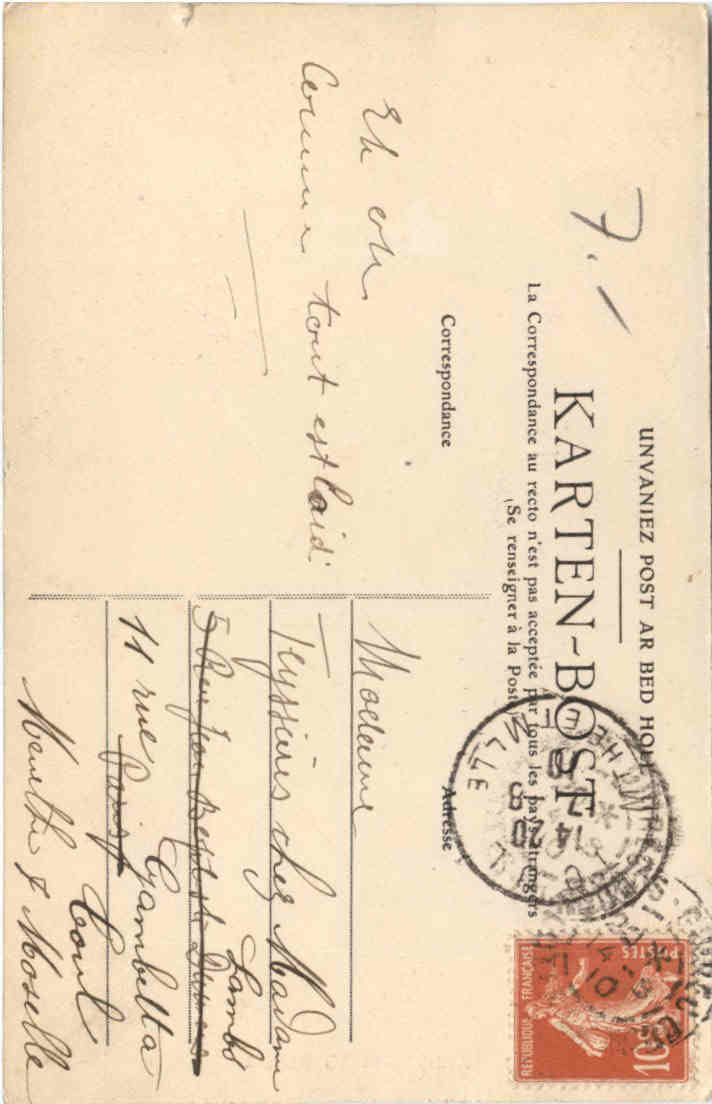 UNVANIEZ POST AR BED HOLL
KARTEN-BOST
La Correspondance au recto n'est pas acceptée par tous les pays étrangers
(Se renseigner à la Poste)
Correspondance
Adresse
7. /
Eh oh
Comme tout est laid
Madame
Teyssières chez Madame
Lambs
5 Rue Jean Bapt St Denis
11 rue Gambetta
Paris
Toul
Meurthe & Moselle
POSTES
RÉPUBLIQUE FRANÇAISE
10